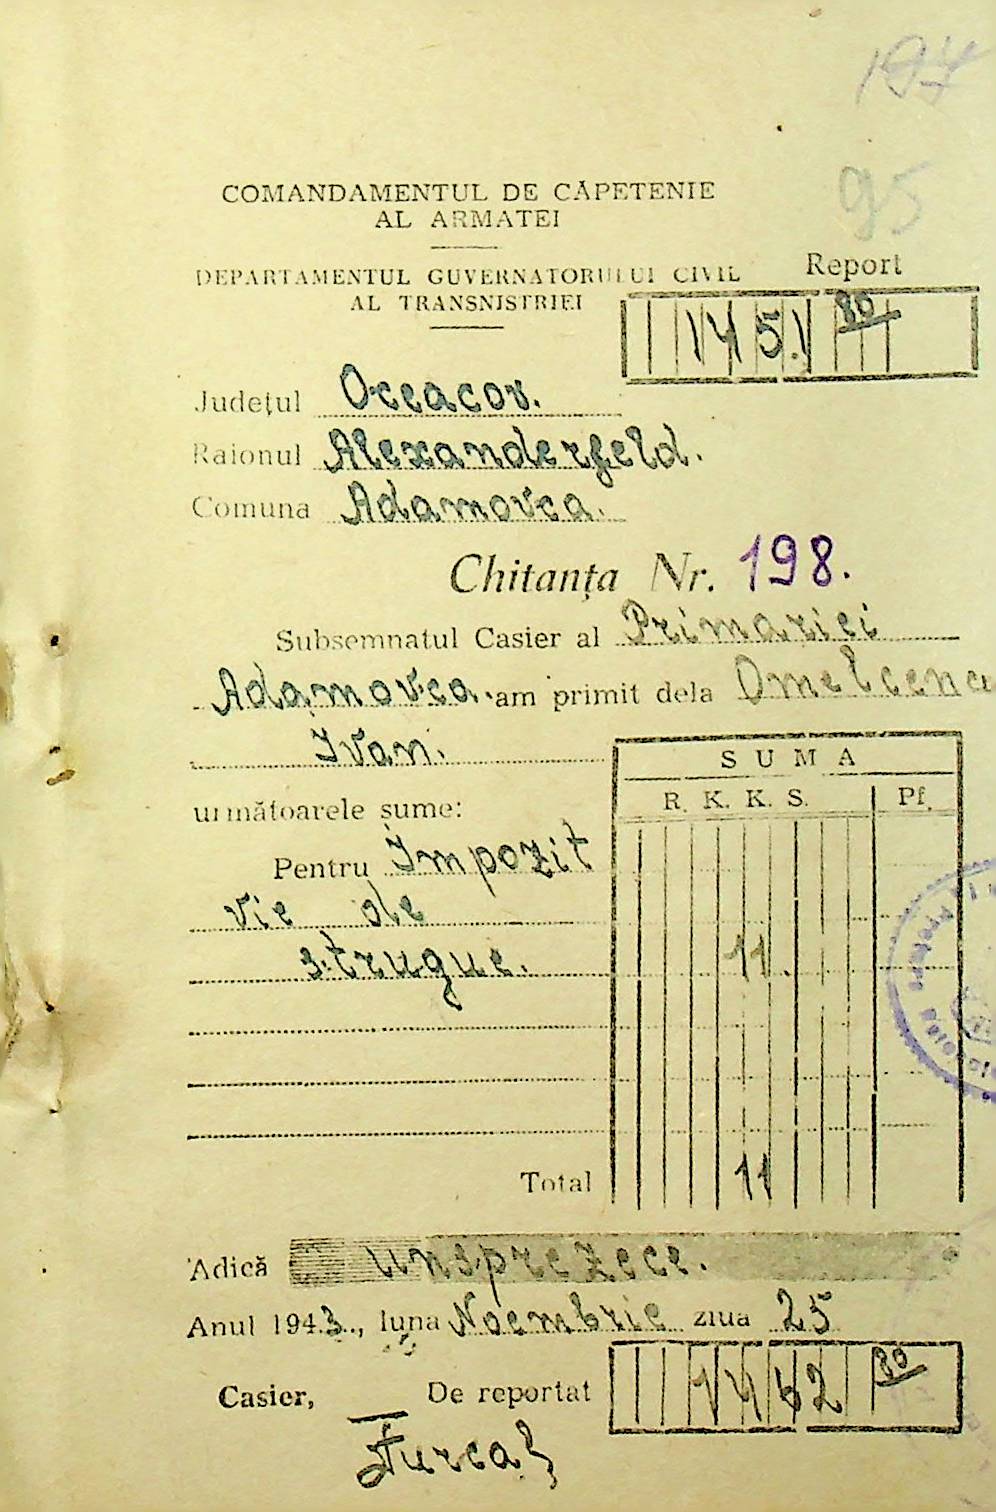 197
95
COMANDAMENTUL DE CĂPETENIE
AL ARMATEI
DEPARTAMENTUL GUVERNATORULUI CIVIL
AL TRANSNISTRIEI
Report
1451 80
Județul Oceacov.
Raionul Alexanderfeld.
Comuna Adamovca.
Chitanța Nr. 198.
Subsemnatul Casier al Primariei
Adamovca. am primit dela Omelcenco
Ivan.
următoarele sume:
SUMA
R. K. K. S. Pf.
Pentru Impozit
vie de
strugue. 11.
Total 11
Adică unsprezece.
Anul 1943., luna Noembrie ziua 25
Casier, De reportat 1462 80
Furca